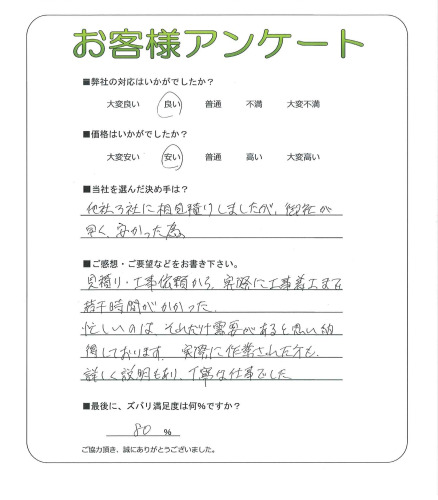 お客様アンケート
■弊社の対応はいかがでしたか？
大変良い 良い 普通 不満 大変不満
■価格はいかがでしたか？
大変安い 安い 普通 高い 大変高い
■当社を選んだ決め手は？
他社3社に相見積りしましたが、御社が
早く、安かった為
■ご感想・ご要望などをお書き下さい。
見積り・工事依頼から、実際に工事着工まで
若干時間がかかった。
忙しいのは、それだけ需要があると思い納
得しております。実際に作業された方も、
詳しく説明もあり、丁寧な仕事でした
■最後に、ズバリ満足度は何%ですか？
80 %
ご協力頂き、誠にありがとうございました。